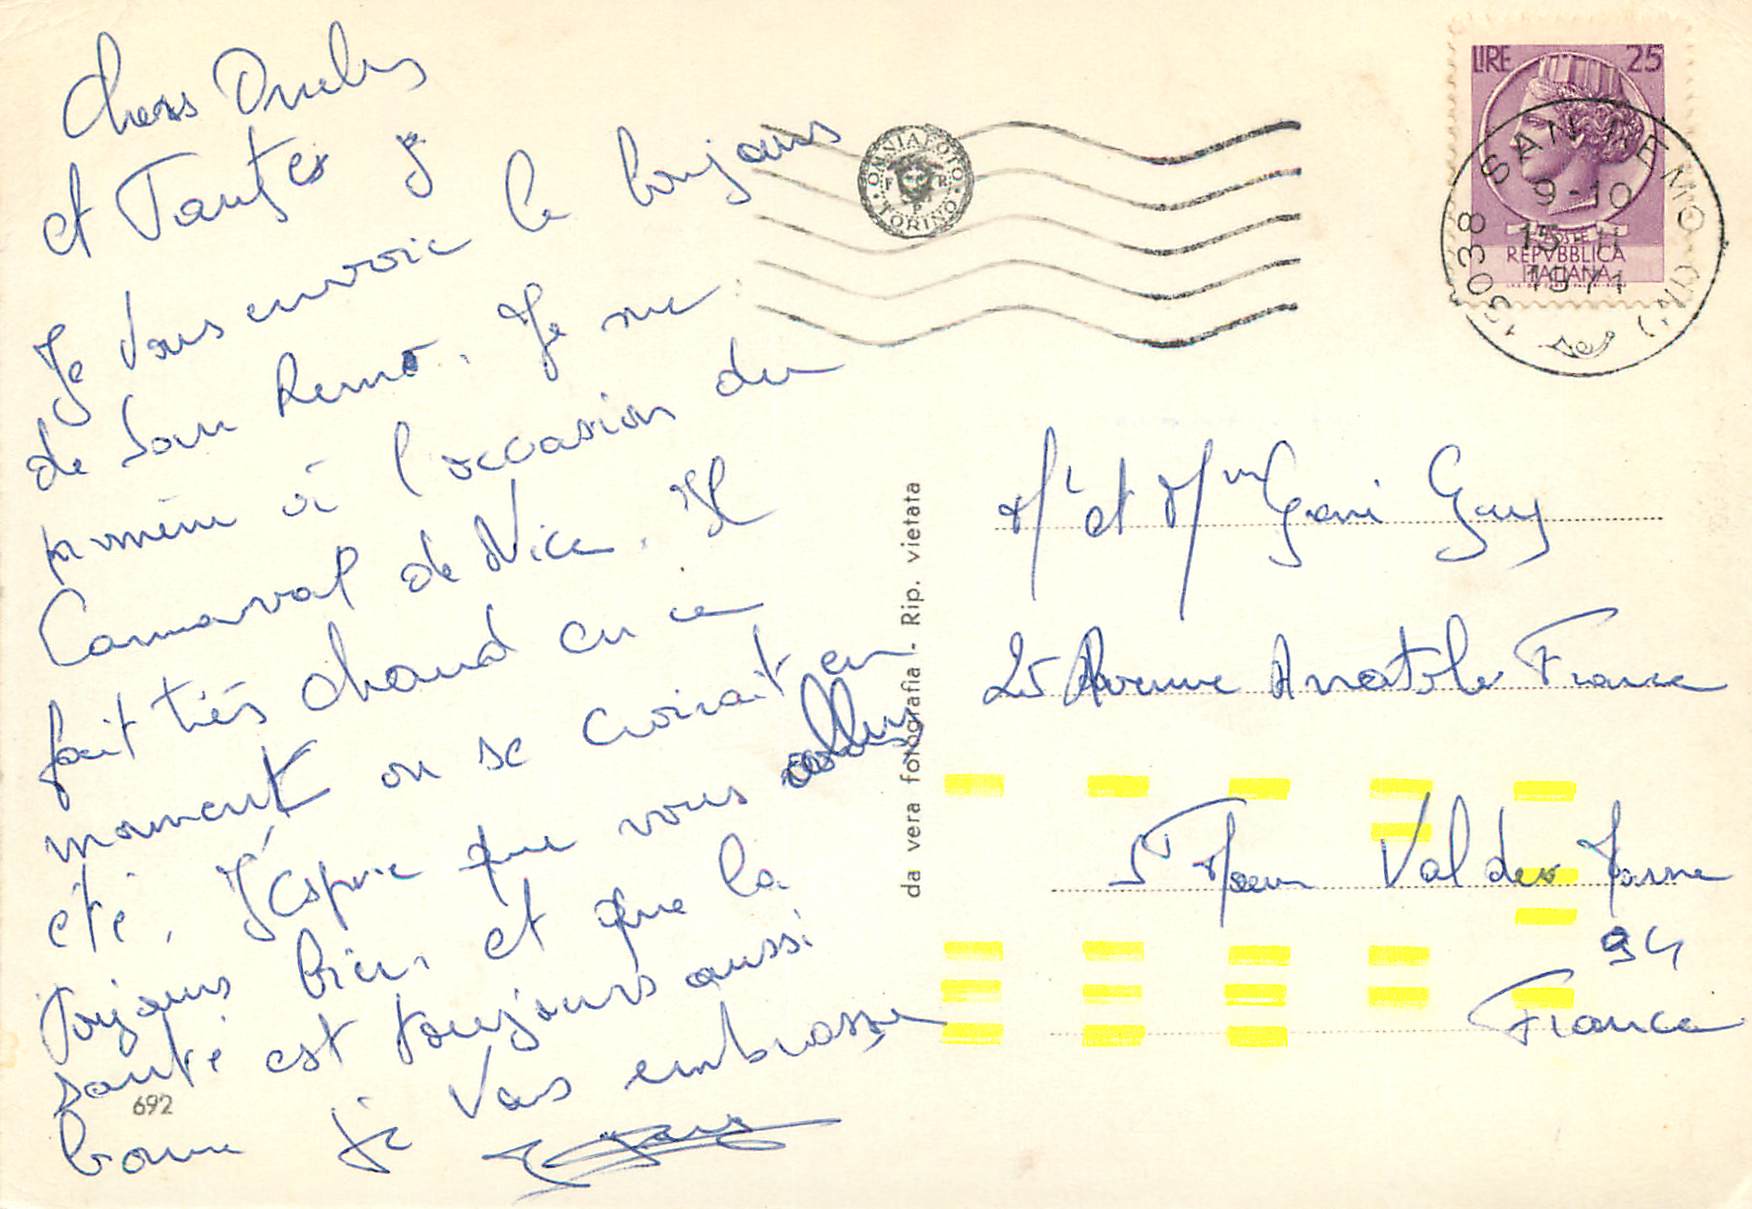 Chers Oncles
et Tantes
Je vous envoie le bonjours
de San Remo. Je me
promène à l'occasion du
Carnaval de Nice. Il
fait très chaud en ce
moment on se croirait en
été. J'espère que vous allez
toujours bien et que la
santé est toujours aussi
bonne je vous embrasse
692
da vera fotografia - Rip. vietata
OMNIAFOTO TORINO
LIRE 25
POSTE
REPVBBLICA
ITALIANA
18038 SANREMO (IM)
9-10
15 II
1971
Mr et Mme Guy
25 Avenue Anatole France
St Maur Val de Marne
94
France